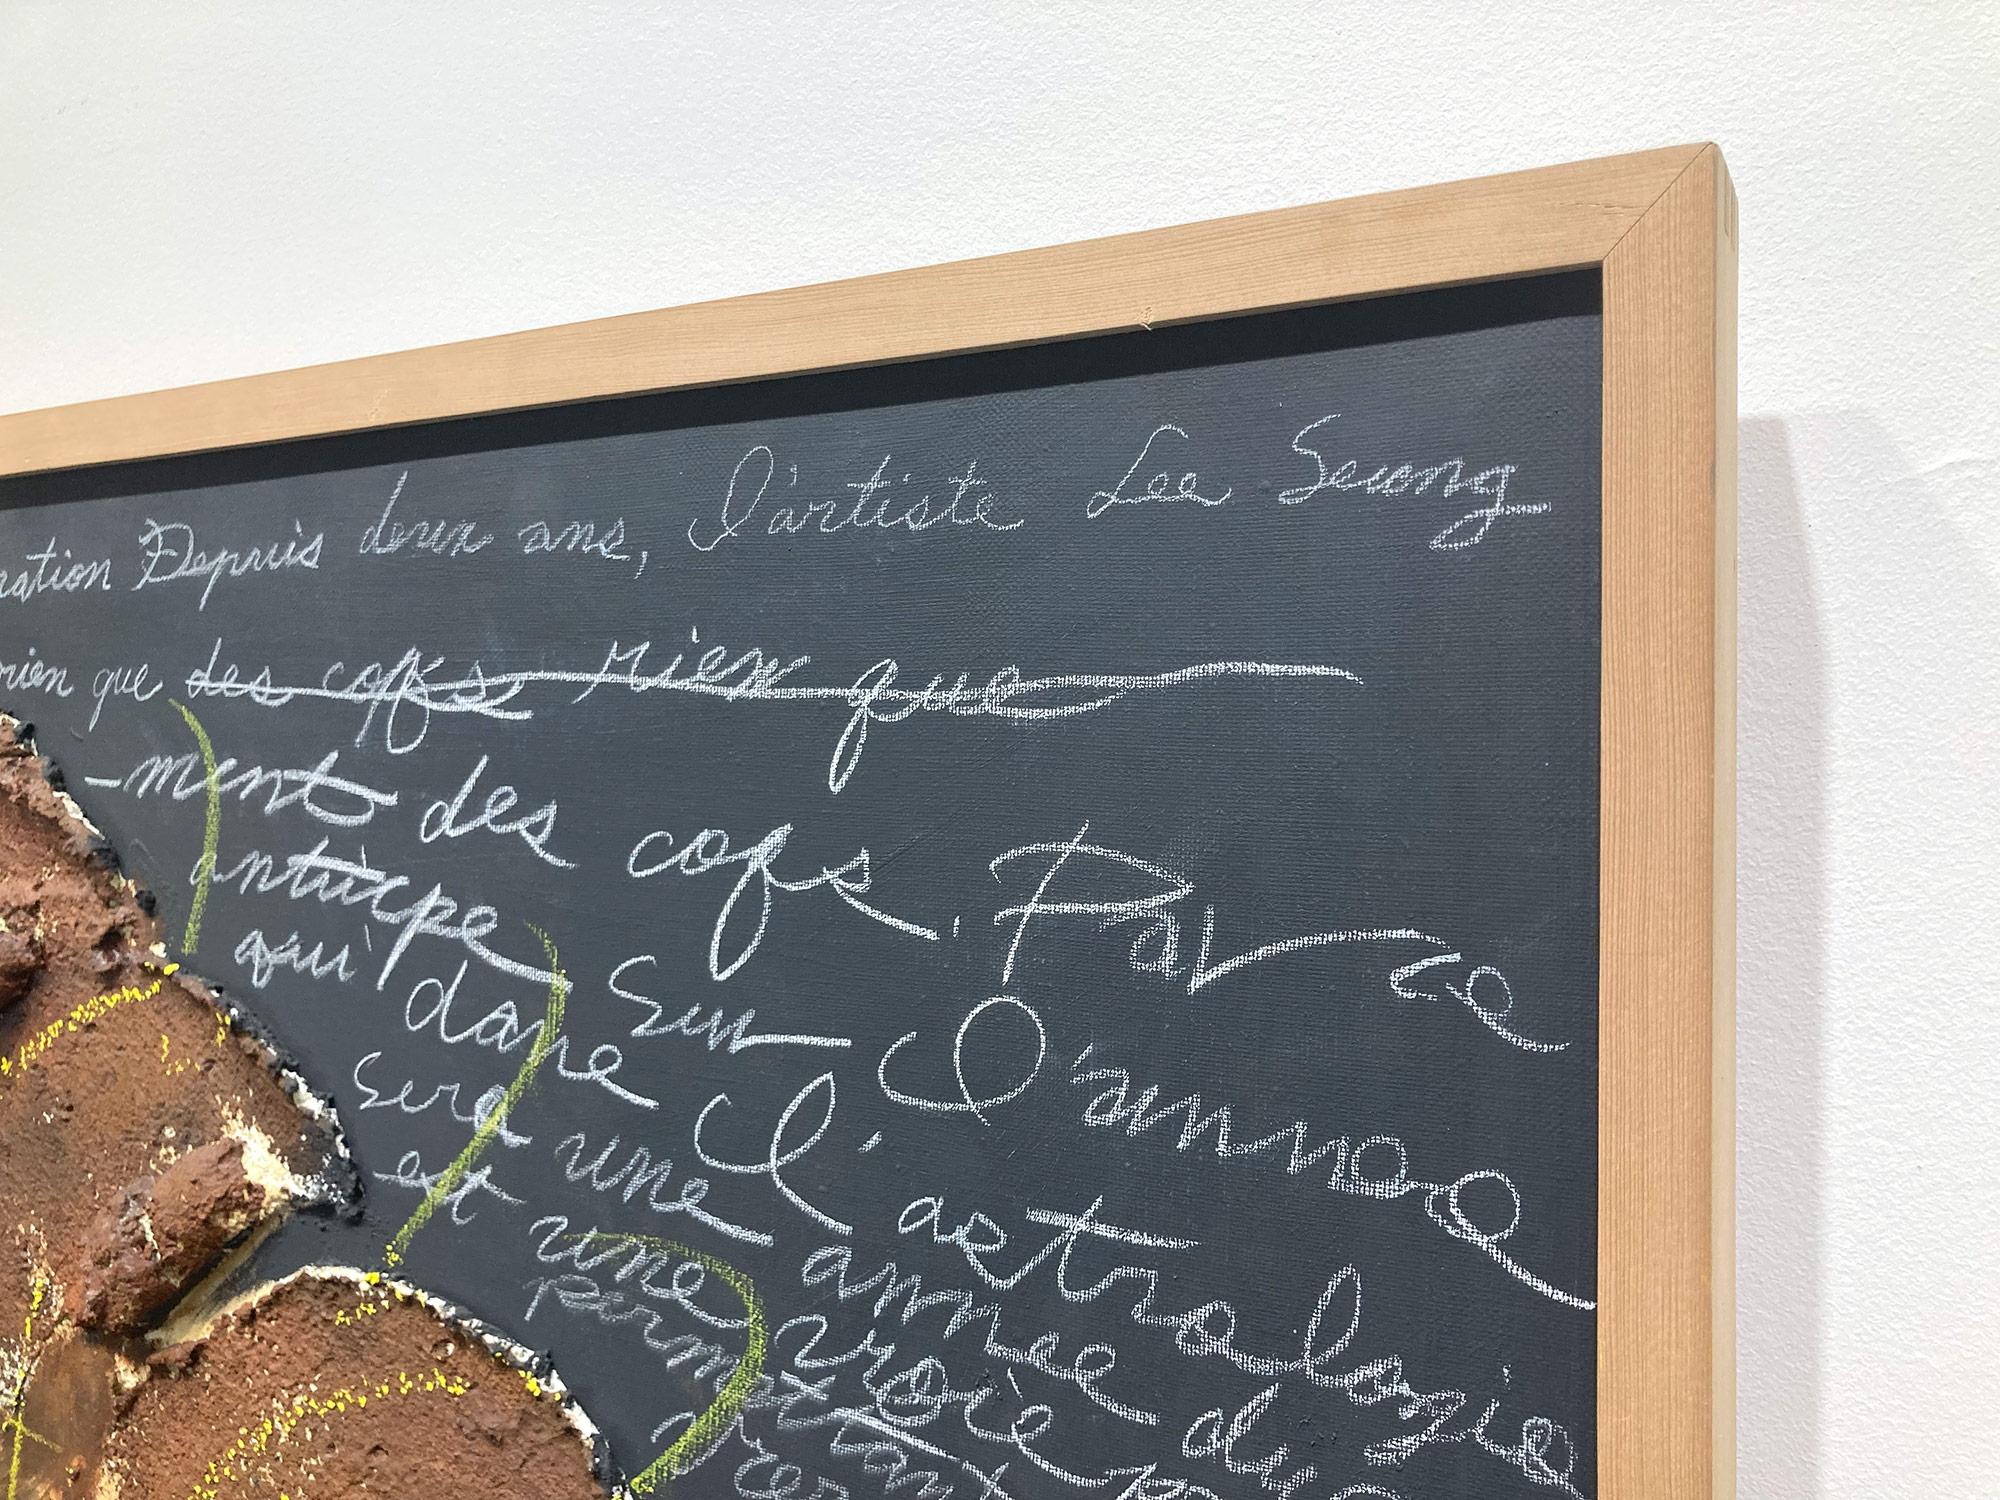 ration Depuis deux ans, l'artiste Lee Seung
rien que des coqs rien que
-ment des coqs. Par ce
anticipe Sur l'année
qui dans l'astralogie
Sera une année du
est une